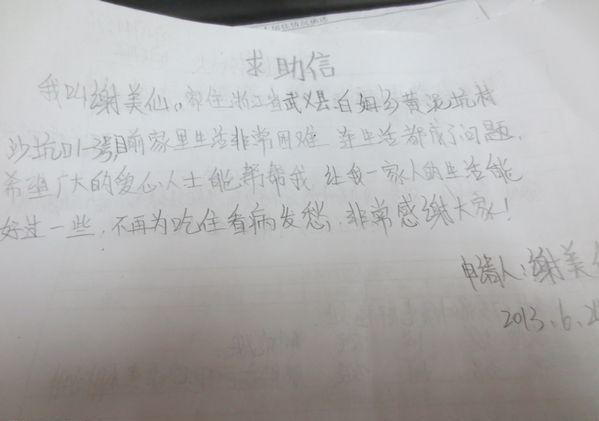 求助信
我叫谢美仙。家住浙江省武义县白姆乡黄泥坑村
沙坑口1-3号,目前家里生活非常困难 连生活都成了问题.
希望广大的爱心人士能帮帮我 让我一家人的生活能
好过一些,不再为吃住看病发愁,非常感谢大家!
申请人:谢美
2013.6.2